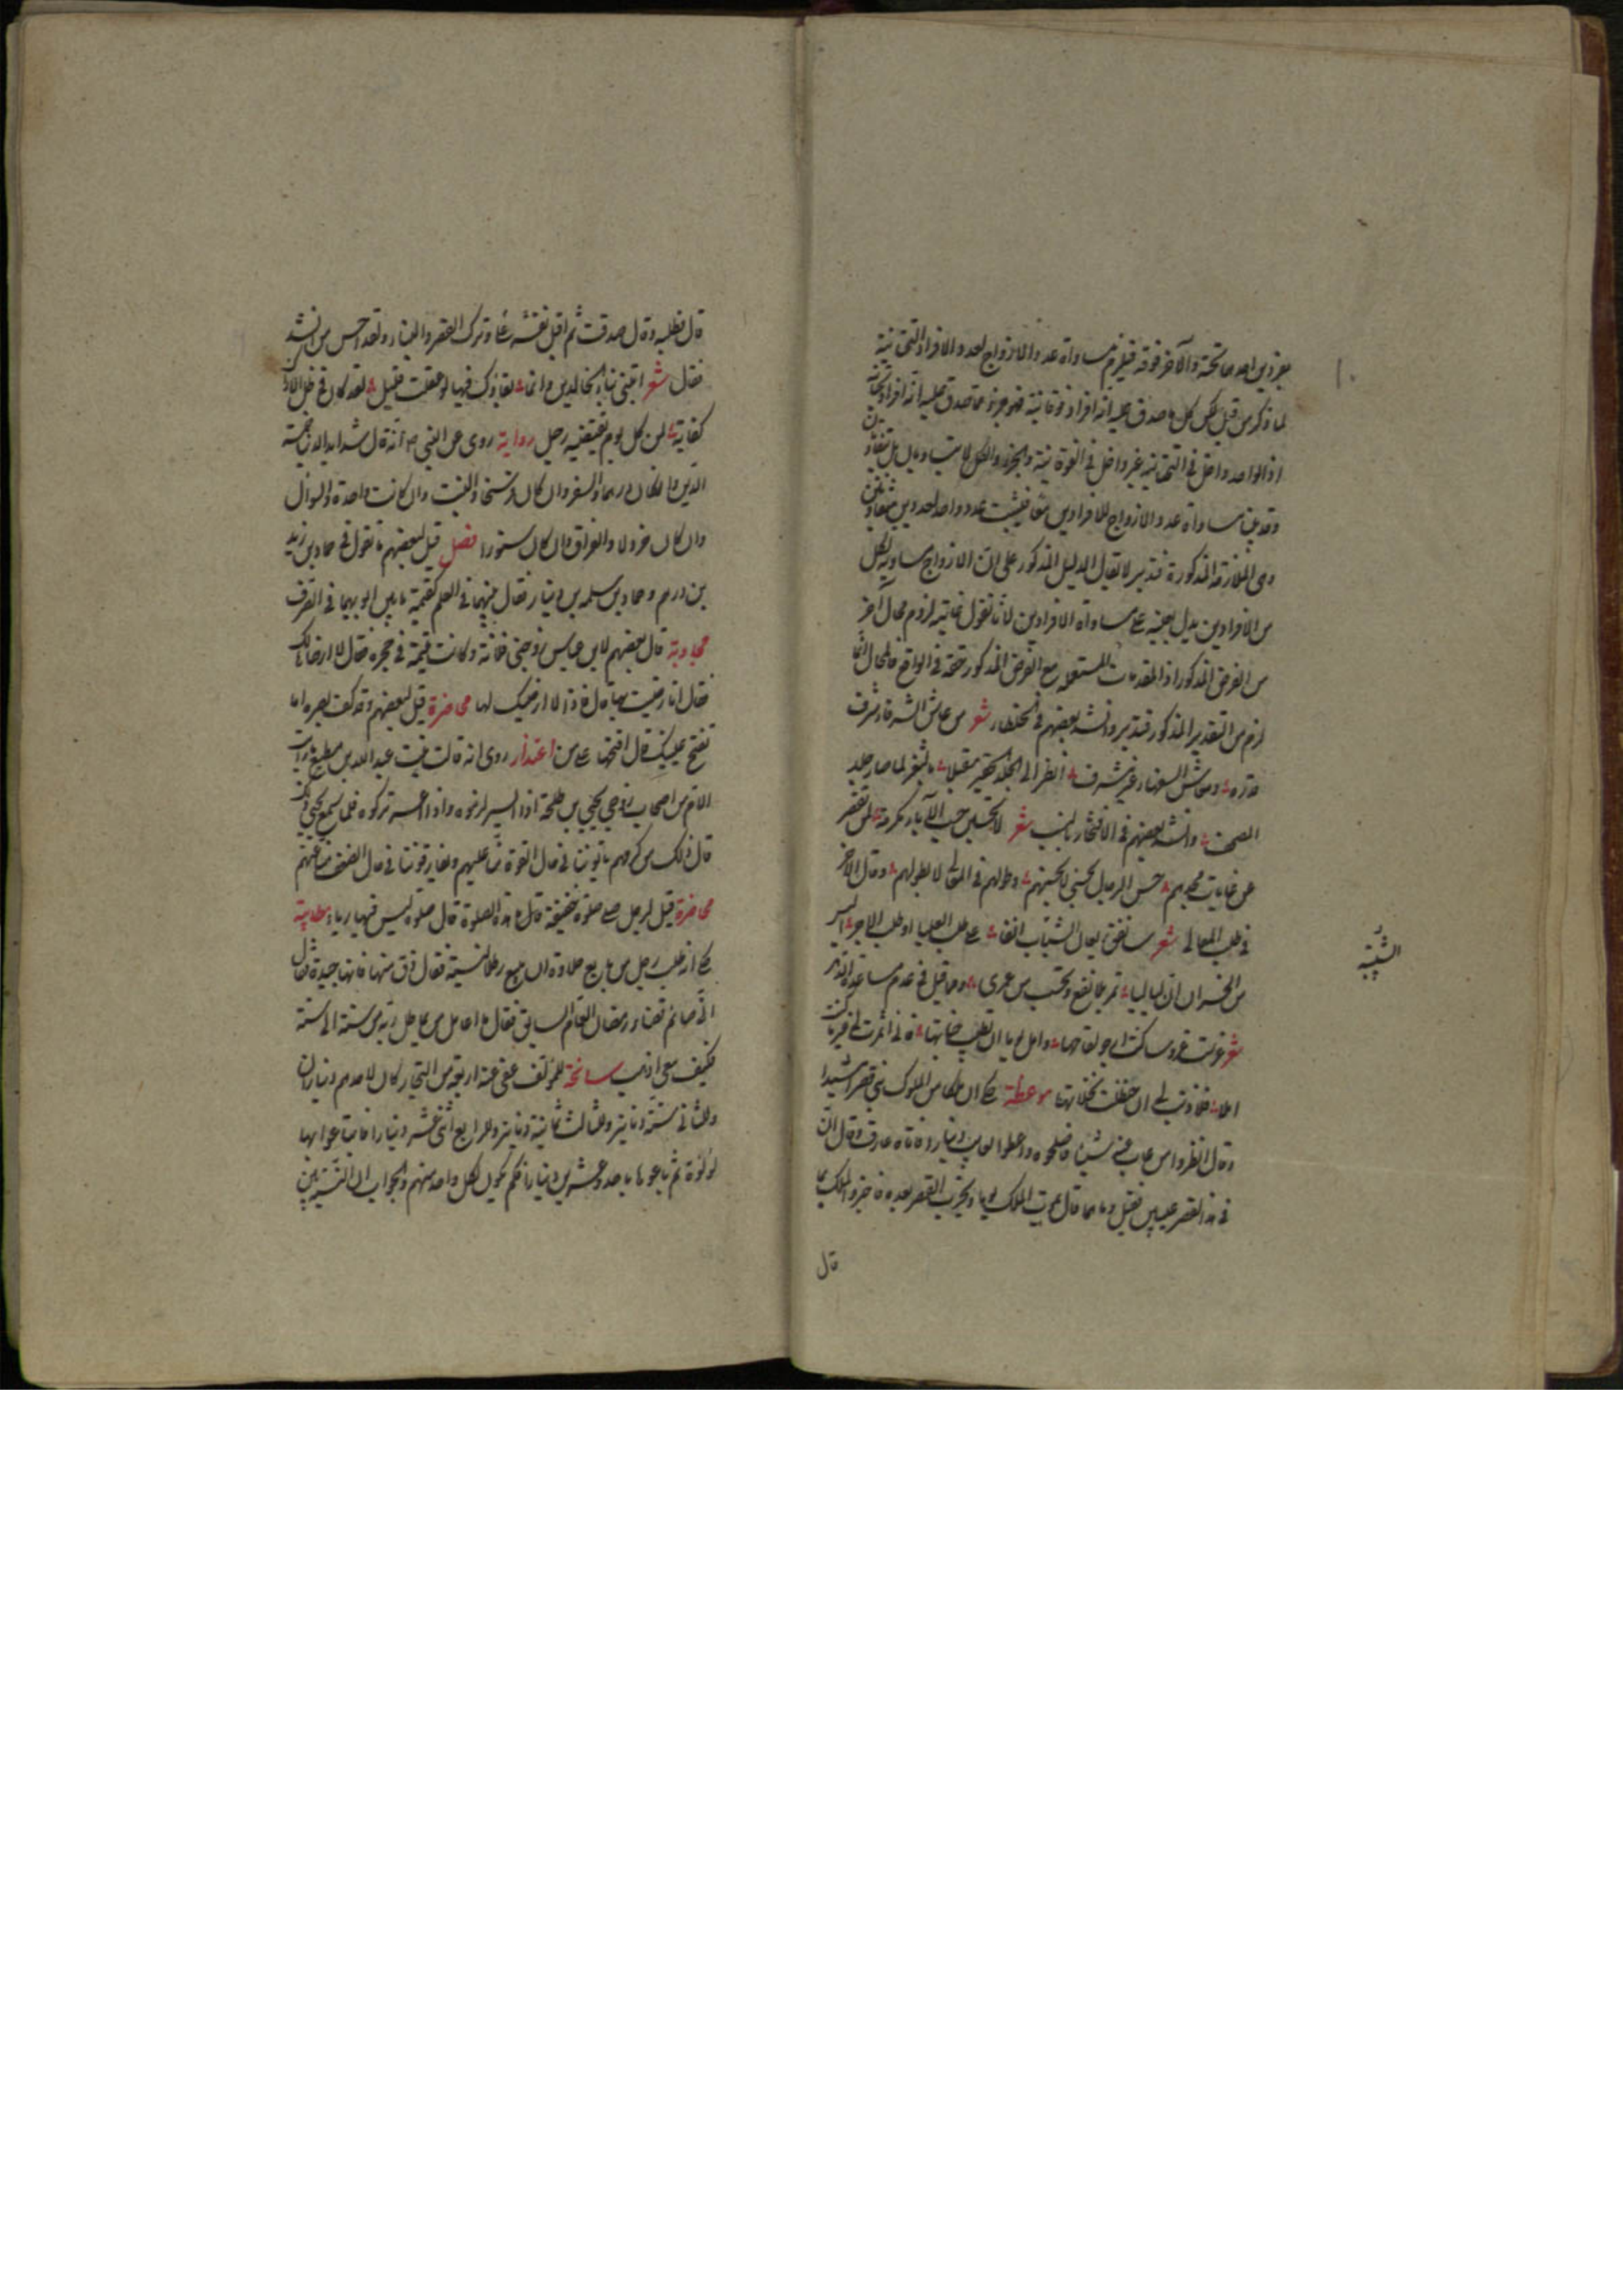 بفردين احدهما تحته والآخر فوقه فيلزم مساواة عدد الازواج لعدد الافراد التحتانية
لما ذكر من قبل لكن كل ما صدق عليه انه افراد فوقانية فهو جزء مما صدق عليه انه افراد تحتانية
اذ الواحد داخل في التحتانية غير داخل في الفوقانية والجزء والكل لا يتساويان بل يتفاوتان
وقد بينا مساواة عدد الازواج للافرادين معا فيثبت عدد واحد لعددين متفاوتين
وهي الملازمة المذكورة فتدبر لا يقال الدليل المذكور على ان الازواج مساوية لكل
من الافرادين يدل بعينه على مساواة الافرادين لانا نقول غايته لزوم محال آخر
من الفرض المذكور اذ المقدمات المستعملة مع الفرض المذكور حقة في الواقع فالمحال انما
لزم من التقدير المذكور فتدبر وانشد بعضهم في شعر من عاش الشرفاء شرف
قدره ومعاش السفهاء غير مشرف انظر الى الجلد الحقير مقبلا بالثغر لما صار جلد
المصحف وانشد بعضهم في الافتخار بالنسب شعر لا حسب الآباء مكرمة لمن يقصر
عن غايات مجدهم حسن الرجال بحسنى لا بحسنهم وطولهم في المعالي لا بطولهم وقال الآخر
في طلب المعالي شعر سانفق ريعان الشباب انفا على طلب العليا او طلب الاجر اليس
من الخسران ان لياليا تمر بلا نفع وتحسب من عمري ومما قيل في عدم مساعدة الدهر
شعر
موعظة حكي ان ملكا من الملوك بنى قصرا مشيدا
وقال انظروا من عاب فيه شيئا فاصلحوه واعطوا العايب دينارا فاتاه عارف وقال ان
في هذا القصر عيبين فقيل وما هما قال يموت الملك يوما ويخرب القصر بعده فاخبروا الملك بما
قال
الشبيبة
قال فطلبه وقال صدقت ثم اقبل نفسه وترك القصر والبناء ولقد احسن من انشد
فقال شعر اتبني بناء الخالدين وانما بقاؤك فيها لو عقلت قليل لقد كان في ظل الاراك
كفاية لمن كل يوم يقتفيه رحيل رواية روي عن النبي ص انه قال شدايد الدنيا خمسة
الدين وان كان درهما والسفر وان كان فرسخا والبنت وان كانت واحدة والسوال
وان كان خردلا والفراق وان كان سنورا فصل قيل لبعضهم ما تقول في حماد بن زيد
بن درهم وحماد بن سلمة بن دينار فقال بينهما في العلم كقيمة ما بين ابويهما في الصرف
مجاوبة قال بعضهم لابن عباس زوجني فلانة وكانت يتيمة في حجره فقال لا ارضاها لك
فقال انا رضيت بها قال فاذا لا ارضيك لها محاضرة قيل لبعضهم وقد كف بصره اما
اعتذار روي انه قالت بنت عبد الله بن مطيع ما رايت
الأم من اصحابك يا زوجي يحيى بن طلحة اذا ايسرت لزموك واذا اعسرت تركوك فلما سمع يحيى ذلك
قال ذلك من كرمهم ياتوننا في حال القوة منا عليهم ويفارقوننا في حال الضعف منا عنهم
محاضرة قيل لرجل صلى صلوة خفيفة ما هذه الصلوة قال صلوة ليس فيها رياء مطايبة
حكي انه طلب رجل من بايع حلاوة ان يبيع رطلا نسية فقال ذق منها فانها جيدة فقال
اني صائم قضاء رمضان العام السابق فقال لا اعامل من يماطل ربه من سنة الى سنة
فكيف معي اذهب سانحة للمؤلف عفي عنه اربعة من التجار كان لاحدهم ديناران
وللثاني ستة دنانير وللثالث ثمانية دنانير وللرابع اثنى عشر دينارا فابتاعوا بها
لؤلؤة ثم باعوها باحد وعشرين دينارا فكم يكون لكل واحد منهم والجواب ان النسبة بين